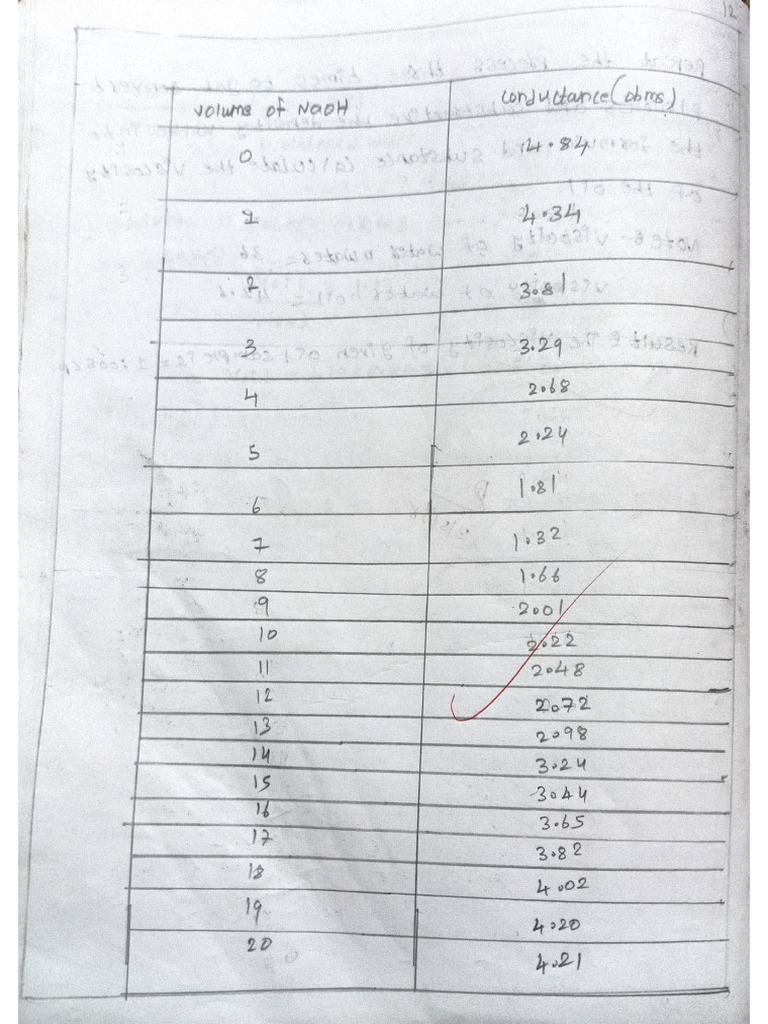 12
volume of NaOH conductance (ohms)
0 4.84
1 4.34
2 3.81
3 3.29
4 2.68
5 2.24
6 1.81
7 1.32
8 1.66
9 2.01
10 2.22
11 2.48
12 2.72
13 2.98
14 3.24
15 3.44
16 3.65
17 3.82
18 4.02
19 4.20
20 4.21